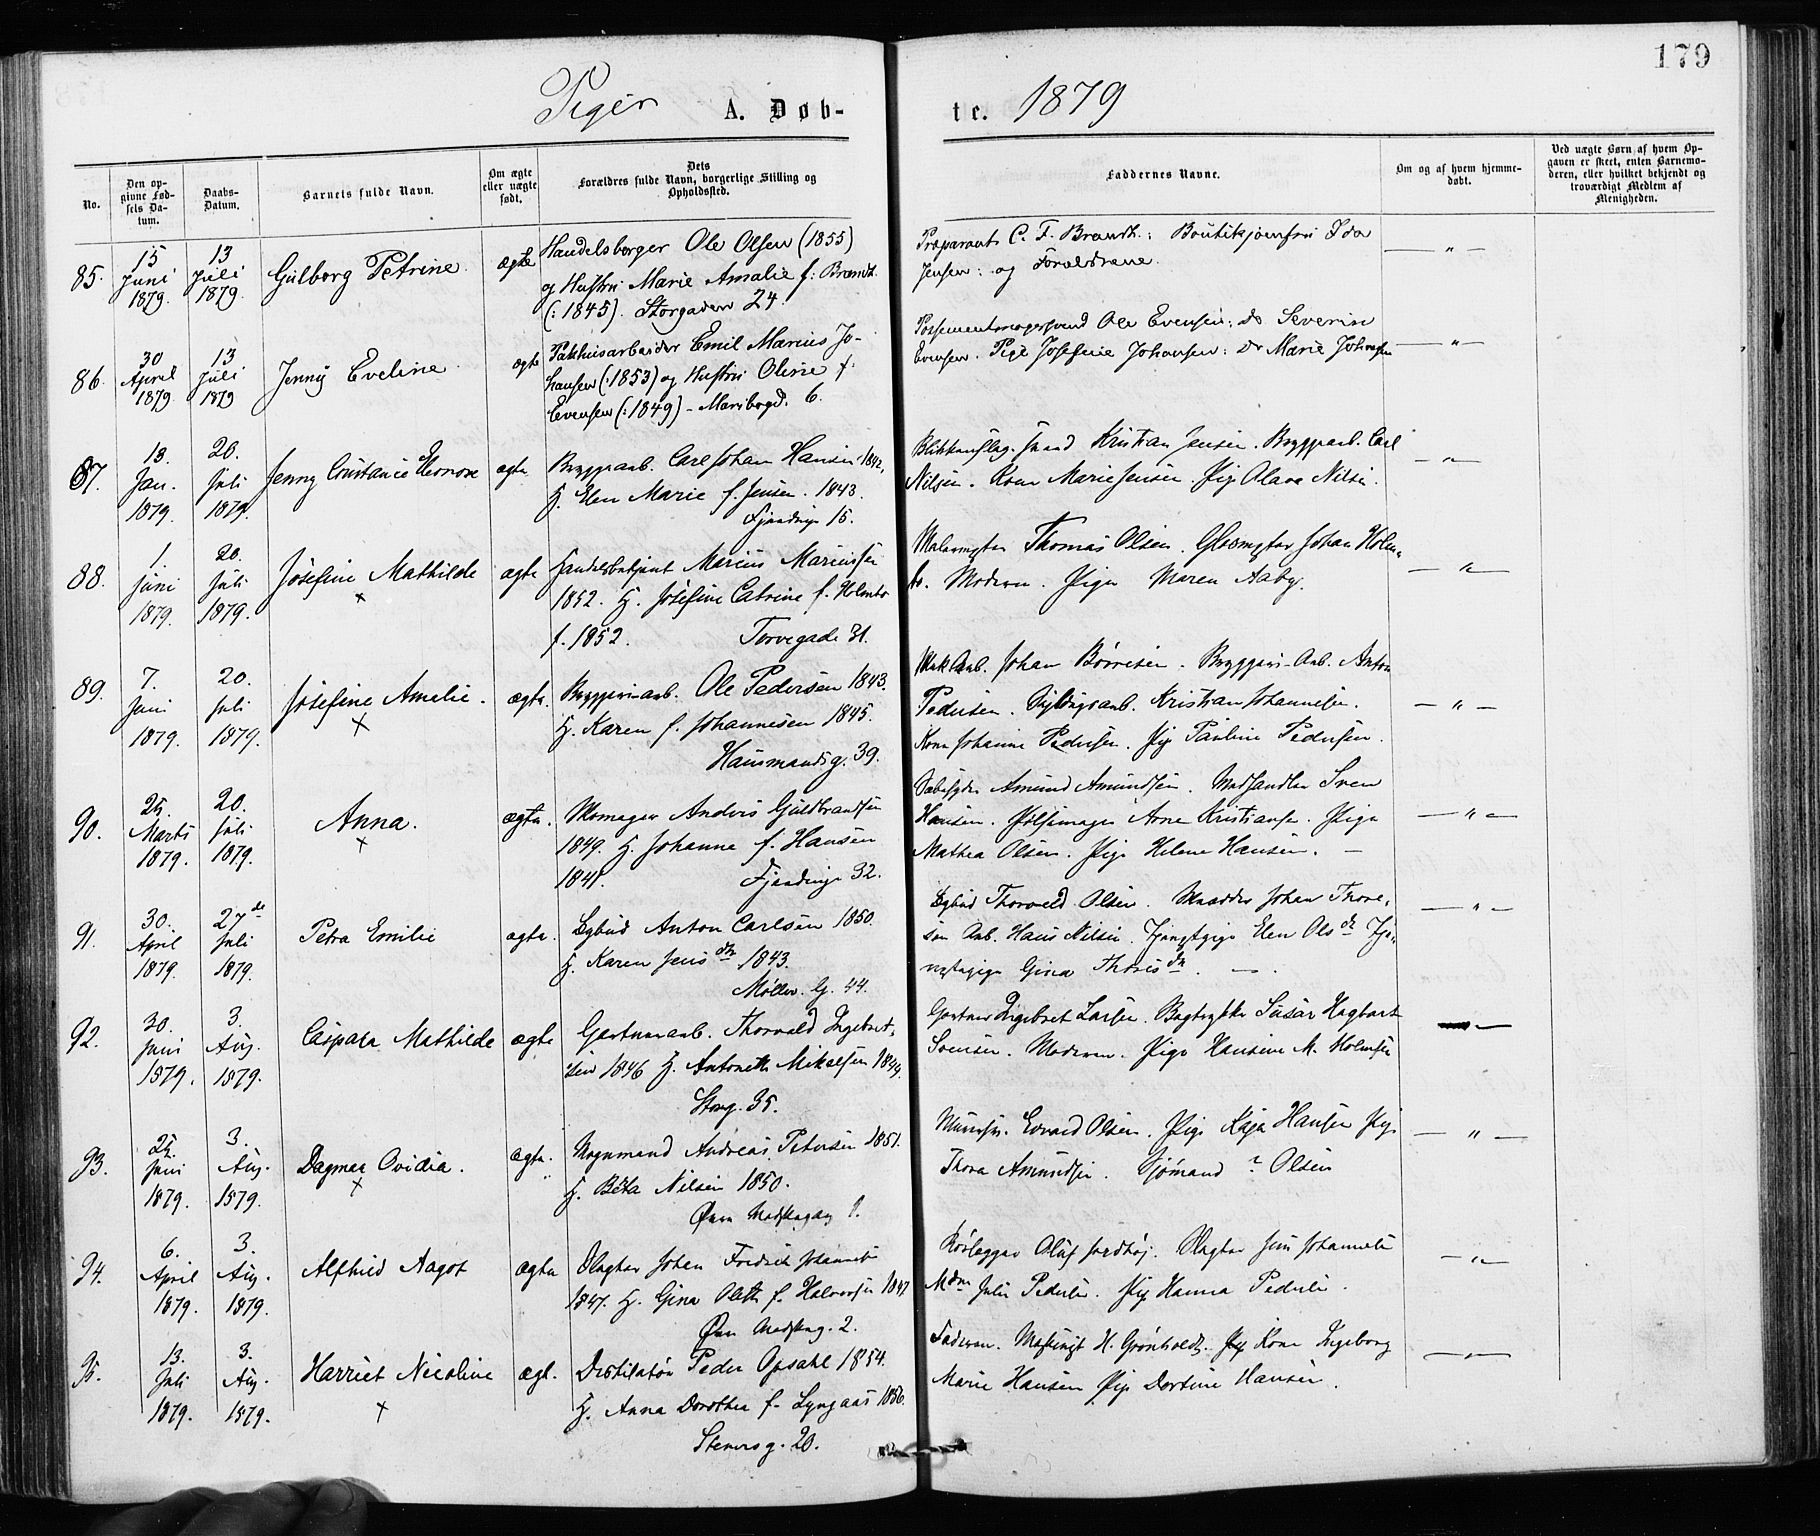 179
Piger A. Døb-
te. 1879
No.
Den op-
givne Fød-
sels Da-
tum.
Daabs-
Datum.
Barnets fulde Navn.
Om ægte
eller uægte
født.
Dets
Forældres fulde Navn, borgerlige Stilling og
Opholdssted.
Faddernes Navne.
Om og af hvem hjemme-
døbt.
Ved uægte Børn af hvem Op-
gaven er skeet, enten Barnemo-
deren, eller hvilket bekjendt og
troværdigt Medlem af
Menigheden.
85. 15 Juni 1879. 13 Juli 1879. Gulborg Petrine. ægte
Handelsborger Ole Olsen (1855)
og Hustru Marie Amalie f: Brandt
(:1845). Storgaden 24.
Præparant C. F. Brandt: Ida
Jensen: og Forældrene.
— „ —
86. 30 April 1879. 13 Juli 1879 Jenny Eveline. ægte
Pakhusarbeider Emil Marius Jo-
hansen (:1853) og Hustru Oline f.
Evensen (:1849) - Maribogd. 6.
Ole Evensen: do Severin
Evensen. Pige Josefine Johansen: Do Marie Johansen
— „ —
87. 13. Jan. 1879. 20. Juli 1879. Jenny Constance Eleonore ægte
Bryggearb. Carl Johan Hansen 1842,
H. Elen Marie f. Jensen. 1843.
15.
Kristian Jensen. Bryggearb. Carl
Nilsen. Kone Marie Jensen. Pige Olava Nilsen.
— „ —
88. 1. Juni 1879. 20. Juli 1879. Josefine Mathilde ægte
×
Handelsbetjent Marius Mariussen
1852. H. Josefine Catrine f. Holmbo
f. 1852. Torvegade 31.
Malermester Thomas Olsen. Johan Holm-
bo. Moderen. Pige Maren Aaby.
— „ —
89. 7. Juni 1879. 20. Juli 1879. Josefine Amalie. ægte.
×
Bryggeri-arb. Ole Pedersen 1843.
H. Karen f. Johannesen 1845.
Hausmandsg. 39.
Johan Børresen. Bryggeri-Arb. Anton
Pedersen. Kristian Johannesen.
Kone Johanne Pedersen. Pige Pauline Pedersen.
— „ —
90. 25. Marts 1879. 20. Juli 1879. Anna. ægte.
×
Skomager Anders Guldbrandsen
1849. H. Johanne f. Hansen
1841. 32.
Amund Amundsen. Sven
Hansen. Pølsemager Arne Kristians. Pige
Mathea Olsen. Pige Helene Hansen. —
— „ —
91. 30. April 1879. 27de Juli 1879. Petra Emilie ægte.
Bybud Anton Carlsen 1850.
H. Karen Jensdtr 1843.
Møller. G. 44.
Bybud Thorvald Olsen. Skrædder Johan Thore-
sen Arb. Hans Nilsen. Tjenestpige Elen Olsdtr Tje-
nestepige Gina Thoresdtr. —
— „ —
92. 30. Juni 1879. 3. Aug. 1879. Caspara Mathilde ægte
Gartnerarb. Thorvald Ingebret-
sen 1846 H. Antonette Mikelsen 1849.
Storg. 35.
Gartner Ingebret Larsen. Hagbart
Svensen. Moderen. Pige Hansine M. Holmsen
—
93. 25. Juni 1879. 3. Aug. 1879. Dagmar Ovidia. ægte.
×
Vognmand Andreas Petersen 1851.
H. Beta Nilsen 1850.
1.
Edvard Olsen. Pige Kaja Hansen Pige
Thora Amundsen. Sjømand ? Olsen
— „ —
94. 6. April 1879. 3. Aug. 1879. Alfhild Nagot ægte
Slagter Johan Fredrik Johannesen
1847. H. Gina Olette f. Halvorsen 1847
2.
Oluf Slagter Jens Johannesen
Mdm Julie Pedersen. Pige Hanna Pedersen.
— „ —
95. 13. Juli 1879. 3. Aug. 1879. Harriet Nicoline ægt.
×
Distilatør Peder Opsahl 1854.
H. Anna Dorothea f. Lyngaas 1856.
Stenersg. 20.
Faderen. H. Grønholdt. Kone Ingeborg
Marie Hansen Pige Dortine Hansen.
— „ —